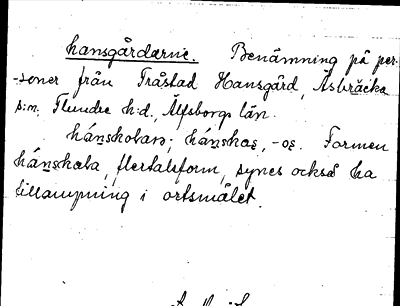 hansgårdarne. Benämning på per-
-soner från Tråstad Hansgård, Åsbräcka
s:n, Flundre h:d, Älfsborgs län.
hánskolarə; hánskas, -os. Formen
hánskala, flertalsform, synes också ha
tillämpning i ortsmålet.